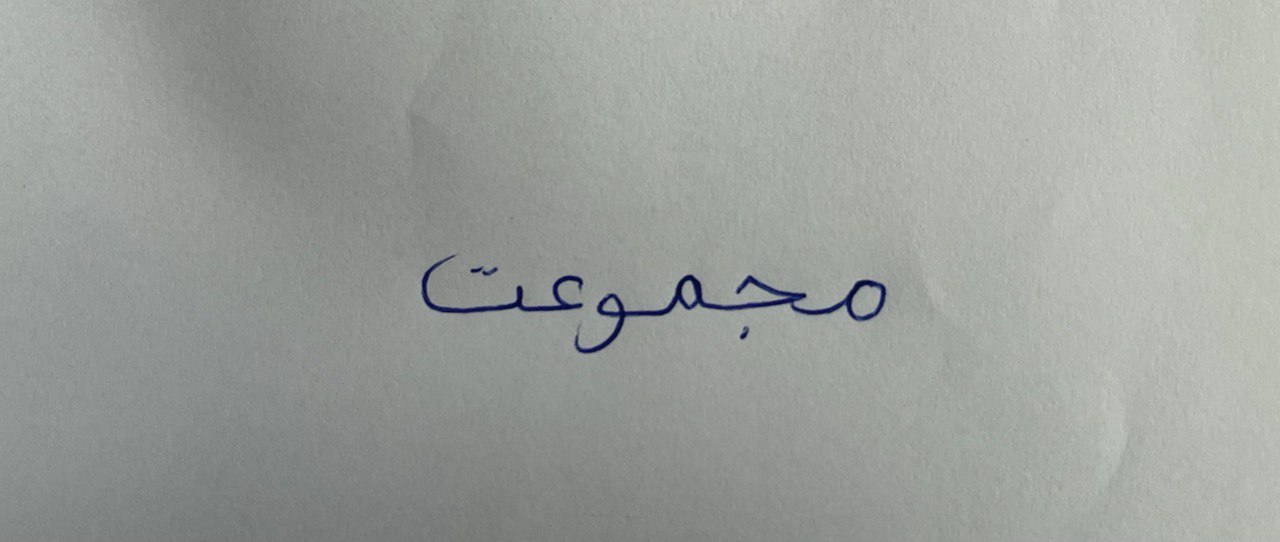 مجموعت